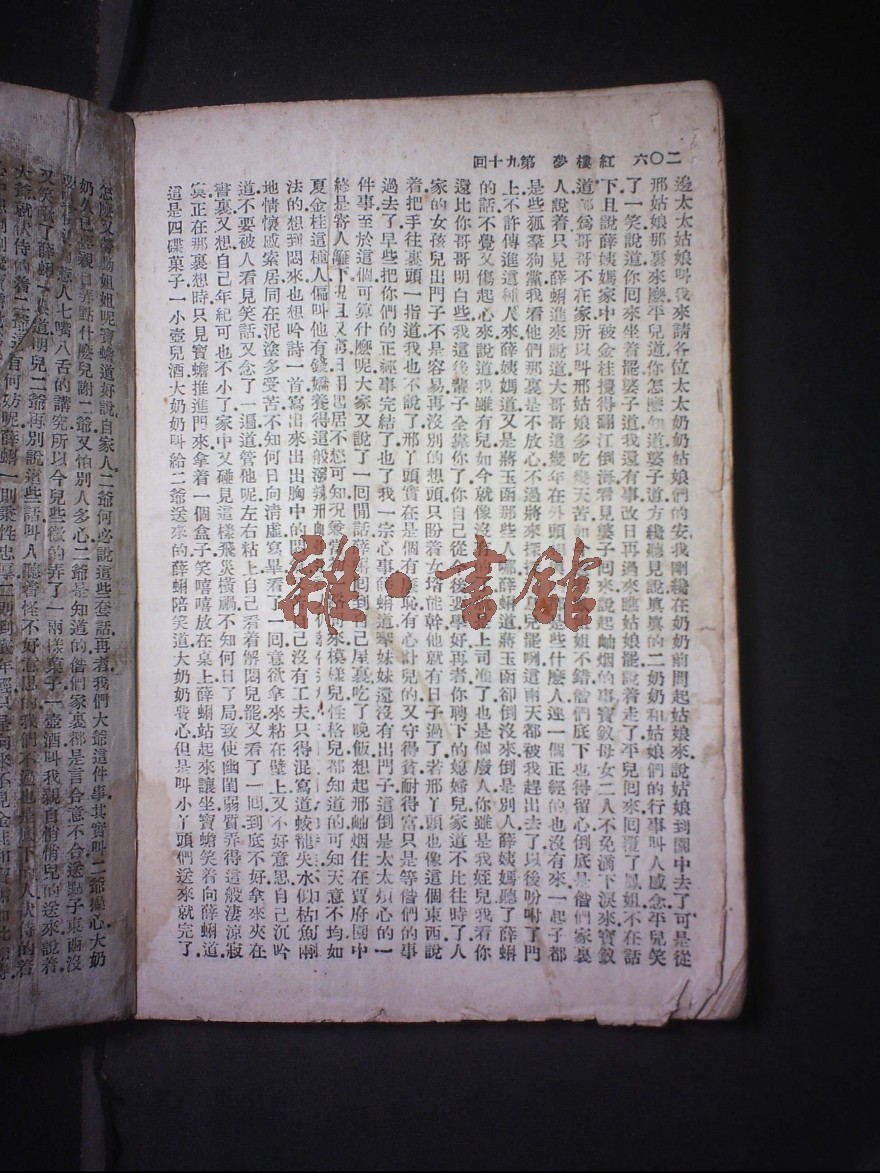 二〇六 紅樓夢 第九十回
邊太太姑娘叫我來請各位太太奶奶姑娘們的安我剛纔在奶奶前問起姑娘來說姑娘到園中去了可是從
邢姑娘那裏來麼平兒道你怎麼知道婆子道方纔聽見說眞眞的二奶奶和姑娘們的行事叫人感念平兒笑
了一笑說道你回來坐着罷婆子道我還有事改日再過來瞧姑娘罷說着走了平兒回來回覆了鳳姐不在話
下且說薛姨媽家中被金桂攪得翻江倒海看見婆子回來說起岫烟的事寶釵母女二人不免滴下淚來寶釵
道都爲哥哥不在家所以叫邢姑娘多吃幾天苦如 姐不錯偺們底下也得留心倒底是偺們家裏
人說着只見薛蝌進來說道大哥哥這幾年在外頭 些什麼人連一個正經的也沒有來一起子都
是些狐羣狗黨我看他們那裏是不放心不過將來探 息兒罷咧這兩天都被我趕出去了以後吩咐了門
上不許傳進這種人來薛姨媽道又是蔣玉函那些人 薛蝌道蔣玉函卻倒沒來倒是別人薛姨媽聽了薛蝌
的話不覺又傷起心來說道我雖有兒如今就像沒有 上司准了也是個廢人你雖是我姪兒我看你
還比你哥哥明白些我這後輩子全靠你了你自己從 後要學好再者你聘下的媳婦兒家道不比往時了人
家的女孩兒出門子不是容易再沒別的想頭只盼着女壻能幹他就有日子過了若邢丫頭也像這個東西說
着把手往裏頭一指道我也不說了邢丫頭實在是個有 恥有心計兒的又守得貧耐得富只是等偺們的事
過去了早些把你們的正經事完結了也了我一宗心事薛蝌道琴妹妹還沒有出門子這倒是太太煩心的一
件事至於這個可算什麼呢大家又說了一囘閒話薛蝌回到自己屋裏吃了晚飯想起邢岫烟住在賈府園中
終是寄人籬下況且又 每日用 起居不想可知況 當 路 來模樣兒性格兒都知道的可知天意不均如
夏金桂這種人偏叫他有錢嬌養得這般潑辣邢
法的想到悶來也想吟詩一首寫出來出出胸中的悶 己沒有工夫只得混寫道蛟龍失水似枯魚兩
地情懷感索居同在泥塗多受苦不知何日向淸虛寫畢看了一囘意欲拿來粘在壁上又不好意思自己沉吟
道不要被人看見笑話又念了一遍道管他呢左右粘上自己看着解悶兒罷又看了一囘到底不好拿來夾在
書裏又想自己年紀可也不小了家中又碰見這樣飛災橫禍不知何日了局致使幽閨弱質弄得這般淒涼寂
寞正在那裏想時只見寶蟾推進門來拿着一個盒子笑嘻嘻放在桌上薛蝌站起來讓坐寶蟾笑着向薛蝌道
這是四碟菓子一小壺兒酒大奶奶叫給二爺送來的薛蝌陪笑道大奶奶費心但是叫小丫頭們送來就完了
怎麼又勞動姐姐呢寶蟾道好說自家人二爺何必說這些套話再者我們大爺這件事其實叫二爺操心大奶
奶久已要親自弄點什麼兒謝二爺又怕別人多心二爺是知道的偺們家裏都是言合意不合送點子東西沒
要緊倒 惹人七嘴八舌的講究所以今兒些微的弄了一兩樣菓子一壺酒叫我親自悄悄兒的送來說着
又笑瞅了薛蝌一眼道明兒二爺再別說這些話叫人聽着怪不好意思的我們不過也是底下的人伏侍的着
大爺就伏侍的着二爺這有何妨呢薛蝌一則秉性忠厚二則到底年輕只是向來不見金桂和寶蟾如此相待